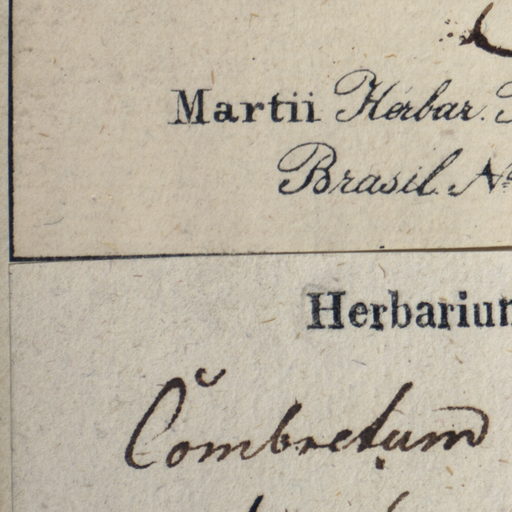 Martii Herbar.
Brasil. Nº
Herbarium
Combretum